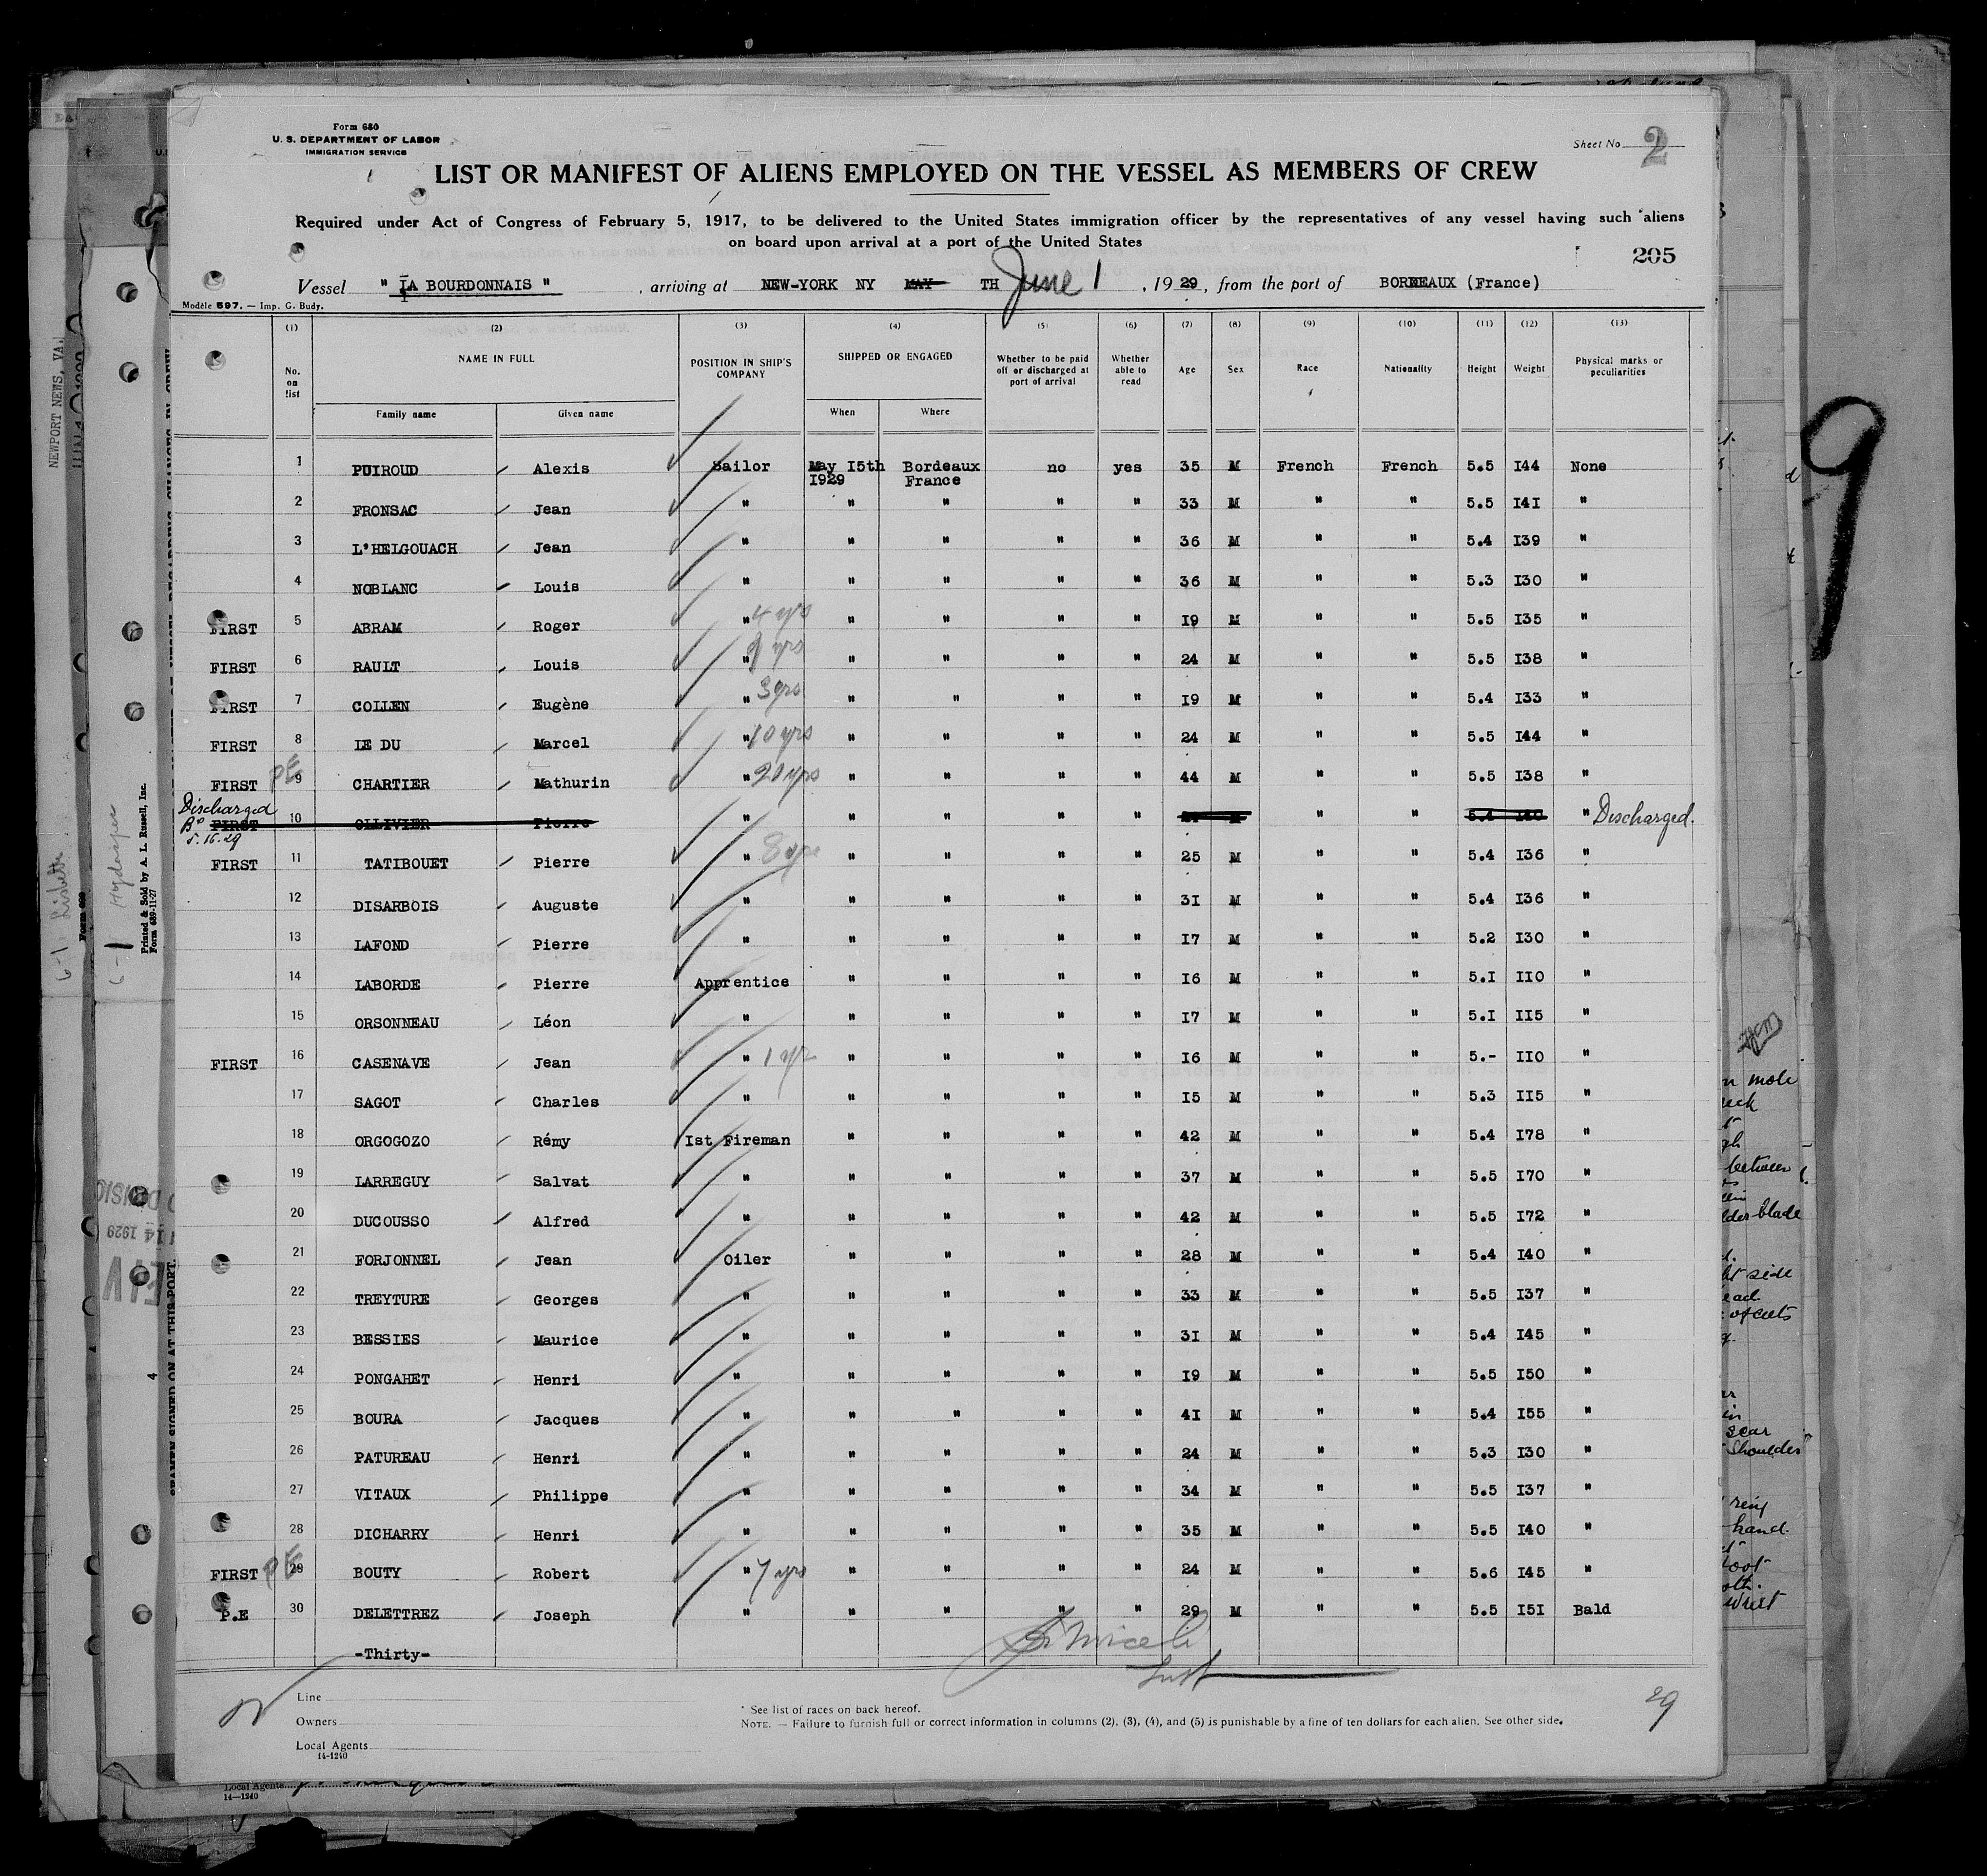 Form 680
U. S. DEPARTMENT OF LABOR
IMMIGRATION SERVICE
Sheet No. 2
LIST OR MANIFEST OF ALIENS EMPLOYED ON THE VESSEL AS MEMBERS OF CREW
Required under Act of Congress of February 5, 1917, to be delivered to the United States immigration officer by the representatives of any vessel having such aliens
on board upon arrival at a port of the United States
205
Vessel " LA BOURDONNAIS " , arriving at NEW-YORK NY MAY TH June 1 , 1929, from the port of BORDEAUX (France)
Modèle 597. — Imp. G. Budy.
(1) (2) (3) (4) (5) (6) (7) (8) (9) (10) (11) (12) (13)
No. on list NAME IN FULL POSITION IN SHIP'S COMPANY SHIPPED OR ENGAGED Whether to be paid off or discharged at port of arrival Whether able to read Age Sex Race Nationality Height Weight Physical marks or peculiarities
Family name Given name When Where
1 PUIROUD Alexis Sailor May I5th I929 Bordeaux France no yes 35 M French French 5.5 I44 None
2 FRONSAC Jean " " " " " 33 M " " 5.5 I4I "
3 L'HELGOUACH Jean " " " " " 36 M " " 5.4 I39 "
4 NOBLANC Louis " " " " " 36 M " " 5.3 I30 "
FIRST 5 ABRAM Roger " 4 yrs " " " " I9 M " " 5.5 I35 "
FIRST 6 RAULT Louis " yrs " " " " 24 M " " 5.5 I38 "
FIRST 7 COLLEN Eugène " 3 yrs " " " " I9 M " " 5.4 I33 "
FIRST 8 LE DU Marcel " 10 yrs " " " " 24 M " " 5.5 I44 "
FIRST PE 9 CHARTIER Mathurin " 20 yrs " " " " 44 M " " 5.5 I38 "
Discharged Bx 5.16.29 FIRST 10 OLLIVIER Pierre " " " " " M " " 5.4 I40 " Discharged.
FIRST 11 TATIBOUET Pierre " 8 yrs " " " " 25 M " " 5.4 I36 "
12 DISARBOIS Auguste " " " " " 3I M " " 5.4 I36 "
13 LAFOND Pierre " " " " " I7 M " " 5.2 I30 "
14 LABORDE Pierre Apprentice " " " " I6 M " " 5.I II0 "
15 ORSONNEAU Léon " " " " " I7 M " " 5.I II5 "
FIRST 16 CASENAVE Jean " 1 yr " " " " I6 M " " 5.- II0 "
17 SAGOT Charles " " " " " I5 M " " 5.3 II5 "
18 ORGOGOZO Rémy Ist Fireman " " " " 42 M " " 5.4 I78 "
19 LARREGUY Salvat " " " " " 37 M " " 5.5 I70 "
20 DUCOUSSO Alfred " " " " " 42 M " " 5.5 I72 "
21 FORJONNEL Jean Oiler " " " " 28 M " " 5.4 I40 "
22 TREYTURE Georges " " " " " 33 M " " 5.5 I37 "
23 BESSIES Maurice " " " " " 3I M " " 5.4 I45 "
24 PONGAHET Henri " " " " " I9 M " " 5.5 I50 "
25 BOURA Jacques " " " " " 4I M " " 5.4 I55 "
26 PATUREAU Henri " " " " " 24 M " " 5.3 I30 "
27 VITAUX Philippe " " " " " 34 M " " 5.5 I37 "
28 DICHARRY Henri " " " " " 35 M " " 5.5 I40 "
FIRST PE 29 BOUTY Robert " 7 yrs " " " " 24 M " " 5.6 I45 "
P.E 30 DELETTREZ Joseph " " " " " 29 M " " 5.5 I5I Bald
-Thirty-
Line
Owners
Local Agents
14-1240
* See list of races on back hereof.
NOTE. — Failure to furnish full or correct information in columns (2), (3), (4), and (5) is punishable by a fine of ten dollars for each alien. See other side.
29
9
NEWPORT NEWS, VA.
6-1 Lisbeth
6-1 Hydaspes
Printed & Sold by A. L. Russell, Inc.
Form 689-11-27
SEAMEN SIGNED ON AT THIS PORT.
14 1929
4
mole
between
blade
side
scar
shoulder
ring
hand
foot
wrist
Local Agents
14—1240